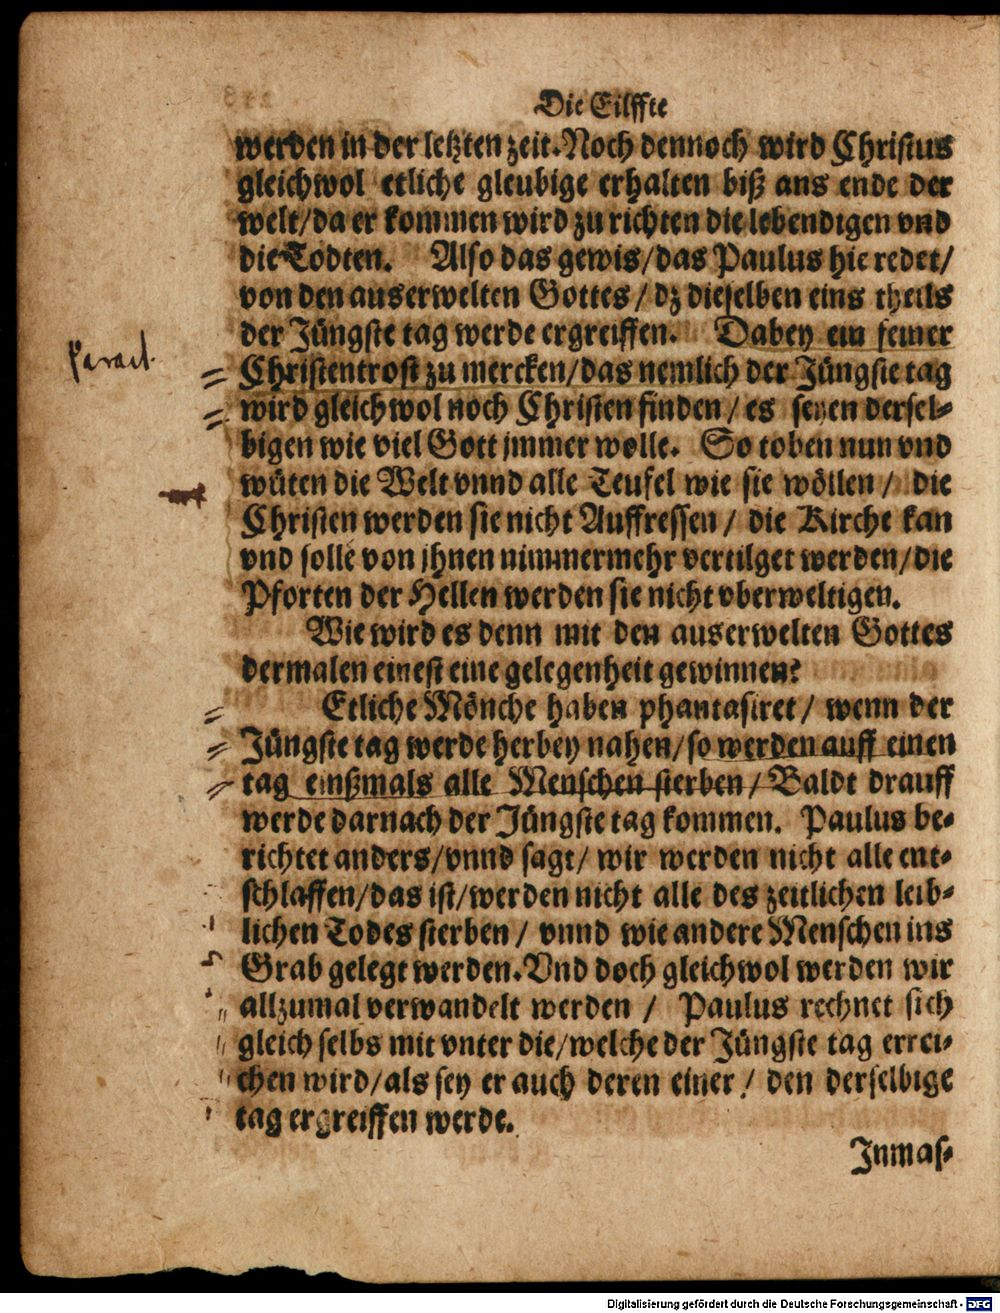 Die Eilffte
werden in der letzten zeit. Noch dennoch wird Christus
gleichwol etliche gleubige erhalten biß ans ende der
welt/da er kommen wird zu richten die lebendigen vnd
die Todten. Also das gewis/das Paulus hie redet/
von den auserwelten Gottes/dz dieselben eins theils
der Jüngste tag werde ergreiffen. Dabey ein feiner
Christentrost zu mercken/das nemlich der Jüngste tag
wird gleichwol noch Christen finden/es seyen dersel-
bigen wie viel Gott jmmer wolle. So toben nun vnd
wüten die Welt vnnd alle Teufel wie sie wöllen/die
Christen werden sie nicht Auffressen/die Kirche kan
vnd solle von jhnen nimmermehr vertilget werden/die
Pforten der Hellen werden sie nicht vberweltigen.
Wie wird es denn mit den auserwelten Gottes
dermalen einest eine gelegenheit gewinnen?
Etliche Mönche haben phantasiret/wenn der
Jüngste tag werde herbey nahen/so werden auff einen
tag einßmals alle Menschen sterben/Baldt drauff
werde darnach der Jüngste tag kommen. Paulus be-
richtet anders/vnnd sagt/wir werden nicht alle ent-
schlaffen/das ist/werden nicht alle des zeitlichen leib-
lichen Todes sterben/vnnd wie andere Menschen ins
Grab gelegt werden. Vnd doch gleichwol werden wir
allzumal verwandelt werden/Paulus rechnet sich
gleich selbs mit vnter die/welche der Jüngste tag errei-
chen wird/als sey er auch deren einer/den derselbige
tag ergreiffen werde.
Inmas-
Digitalisierung gefördert durch die Deutsche Forschungsgemeinschaft - DFG